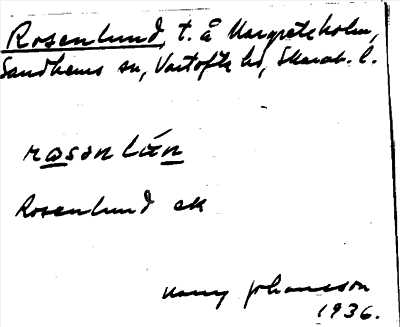 Rosenlund, t. å Margreteholm,
Sandhems sn, Vartofta hd, Skarab. l.
rosənlún
Rosenlund ek
Harry Johansson
1936.